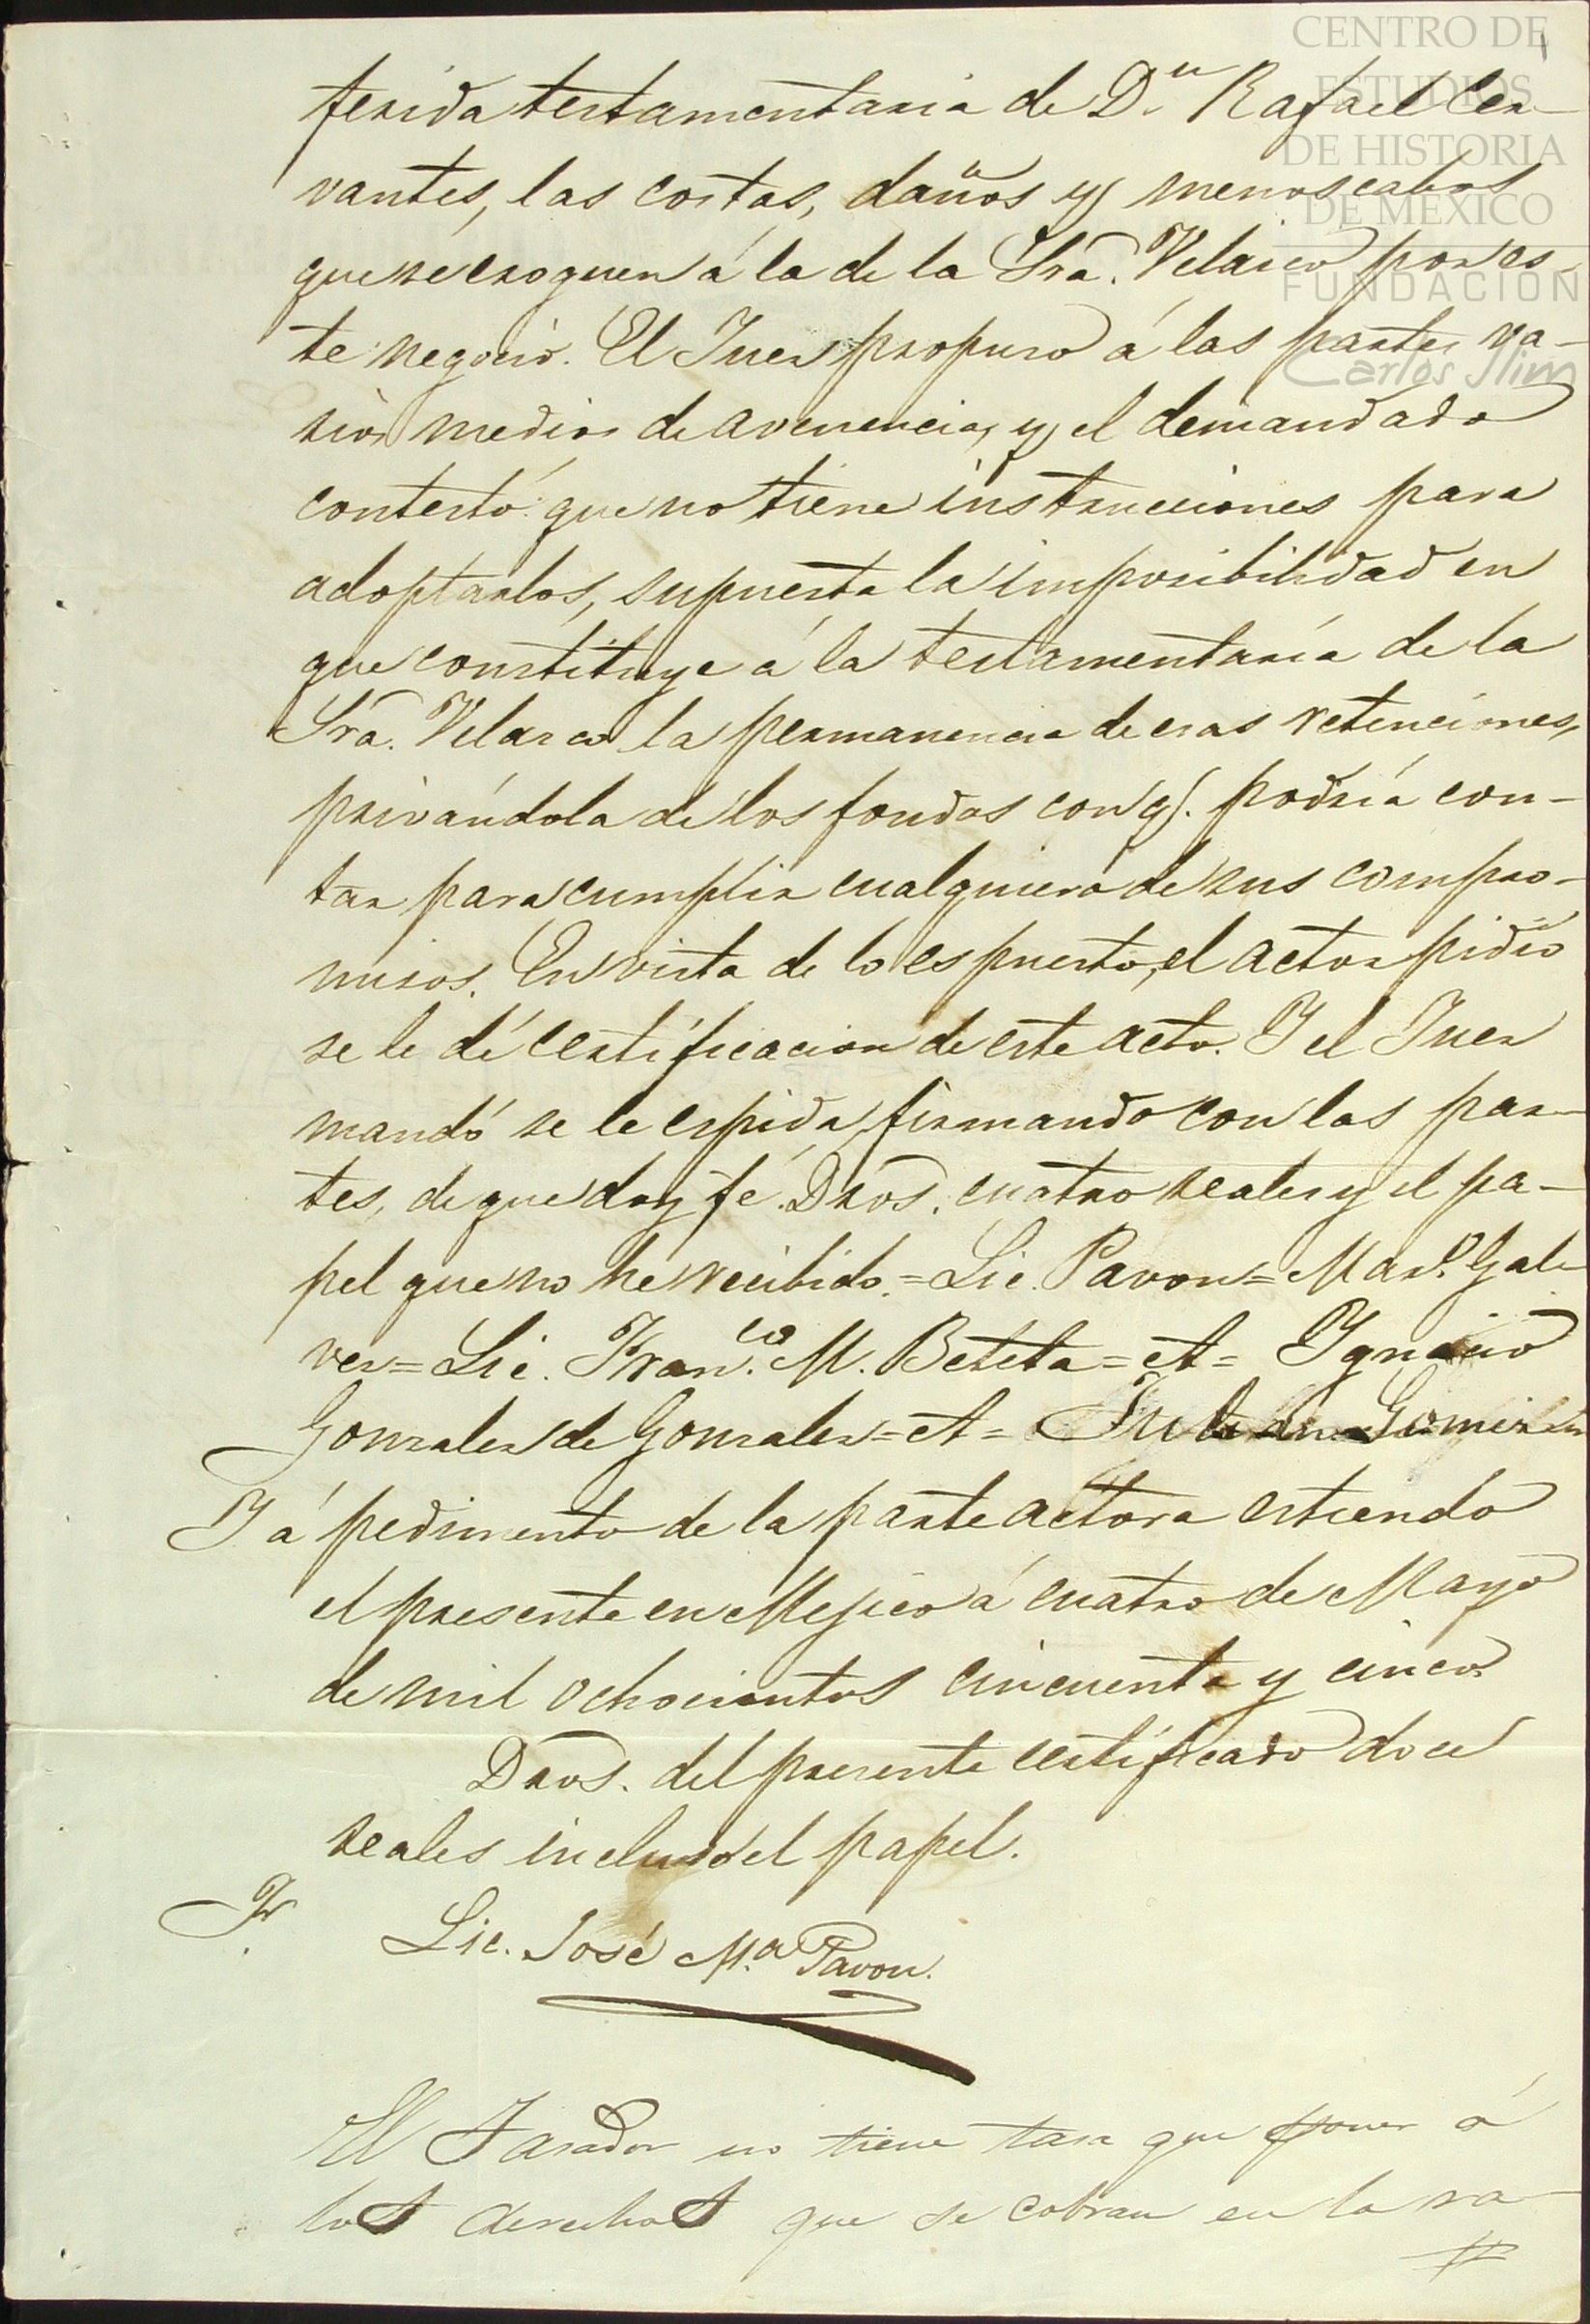 CENTRO DE
ESTUDIOS
DE HISTORIA
DE MEXICO
FUNDACION
Carlos Slim
ferida testamentaria de Dn. Rafael Cer-
vantes, las costas, daños y menoscabos
que se eroguen á la de la Sra. Velasco por es-
te negocio. El Juez propuso á las partes va-
rios medios de avenencia, y el demandado
contestó: que no tiene instrucciones para
adoptarlos, supuesta la imposibilidad en
que constituye á la testamentaría de la
Sra. Velasco la permanencia de esas retenciones,
privándola de los fondos con q. podría con-
tar para cumplir cualquiera de sus compro-
misos. En vista de lo espuesto, el actor pidió
se le dé certificacion de este acto. Y el Juez
mandó se le espida, firmando con las par-
tes, de que doy fé. Dros. cuatro reales y el pa-
pel que no he recibido. = Lic. Pavon = Marl. Gal-
vez = Lic. Franco. M. Beteta = A = Ygnacio
Gonzalez de Gonzalez = A =
Y á pedimento de la parte actora estiendo
el presente en Mejico á cuatro de Mayo
de mil ochocientos cincuenta y cinco.
Dros. del presente certificado doce
reales incluso el papel.
Lic. José Ma. Pavon.
El Tasador no tiene tasa que poner á
los derechos que se cobran en la ra-